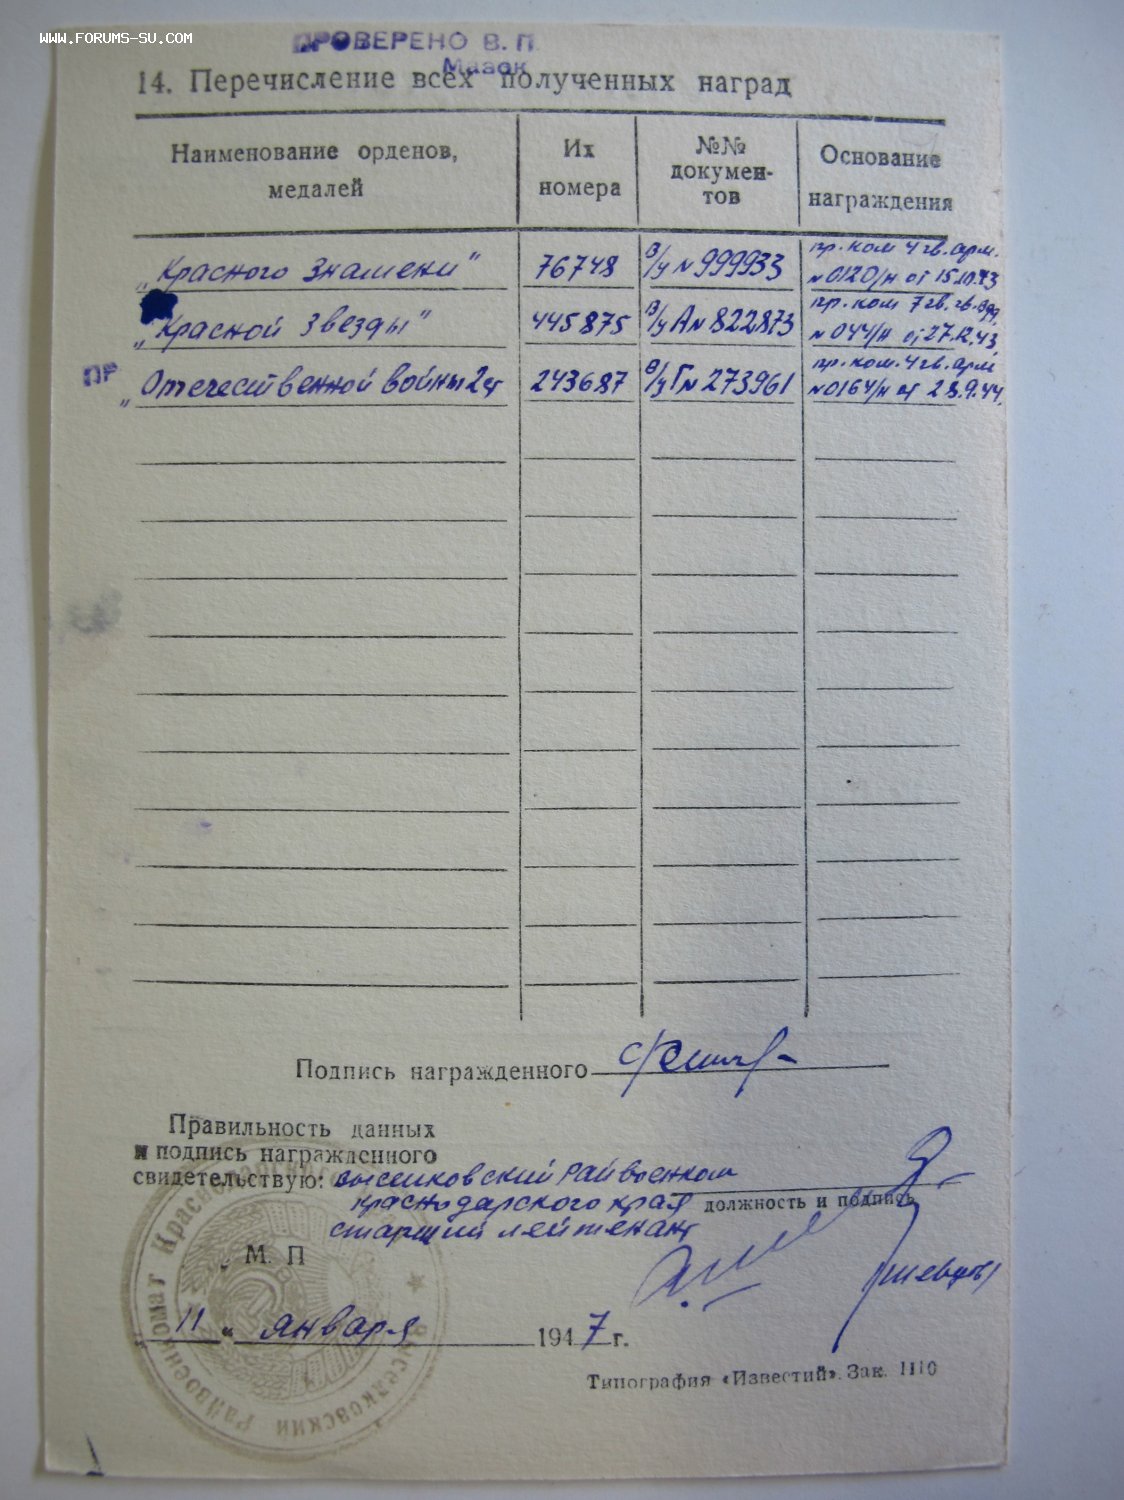 WWW.FORUMS-SU.COM
ПРОВЕРЕНО В. П.
14. Перечисление всех полученных наград
Наименование орденов, медалей
Их номера
№№ докумен-тов
Основание награждения
„Красного Знамени" 76748 в/ч N 999933 пр. ком 4 гв. арм. N 0120/н от 15.10.43
„Красной Звезды" 445875 в/ч А N 822873 пр. ком 7 гв. N 044/н от 27.12.43
ПР
„Отечественной Войны 2 ст 243687 в/ч Г N 273961 пр. ком. 4 гв. арм N 0164/н от 28.9.44.
Подпись награжденного
Правильность данных
и подпись награжденного
свидетельствую: Выселковский Райвоенком
Краснодарского края
должность и подпись
старший лейтенант
М. П
Шевцов
11 „ января 1947 г.
Райвоенкомат Краснодарского
Выселковский
Типография «Известий». Зак. 1110